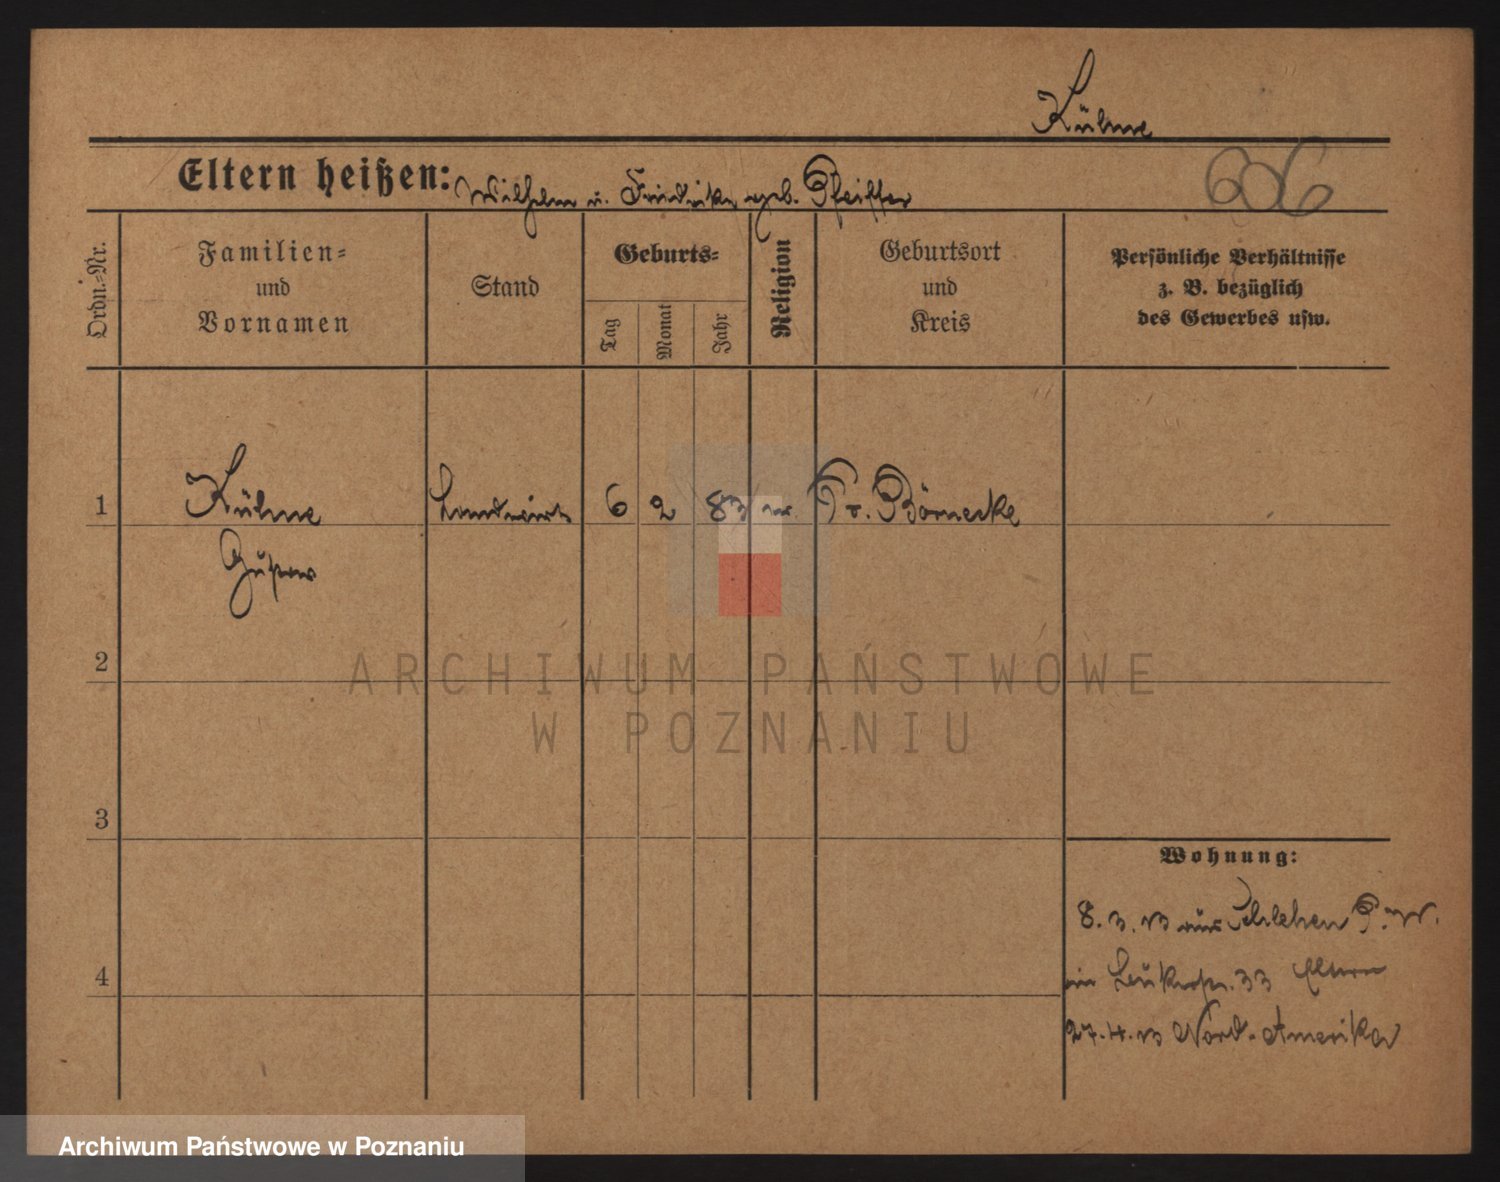 Kühne
Eltern heißen: Wilhelm u. Friedrike geb. Pfeiffer
606
Ordn.-Nr.
Familien-
und
Vornamen
Stand
Geburts-
Tag
Monat
Jahr
Religion
Geburtsort
und
Kreis
Persönliche Verhältnisse
z. B. bezüglich
des Gewerbes usw.
1
Kühne
Gustav
Landwirt
6
2
83
ev.
Gr. Börnecke
2
3
4
Wohnung:
8. 3. 13 aus P. W.
in 33 Eltern
27. 4. 13 Nord-Amerika
ARCHIWUM PAŃSTWOWE
W POZNANIU
Archiwum Państwowe w Poznaniu